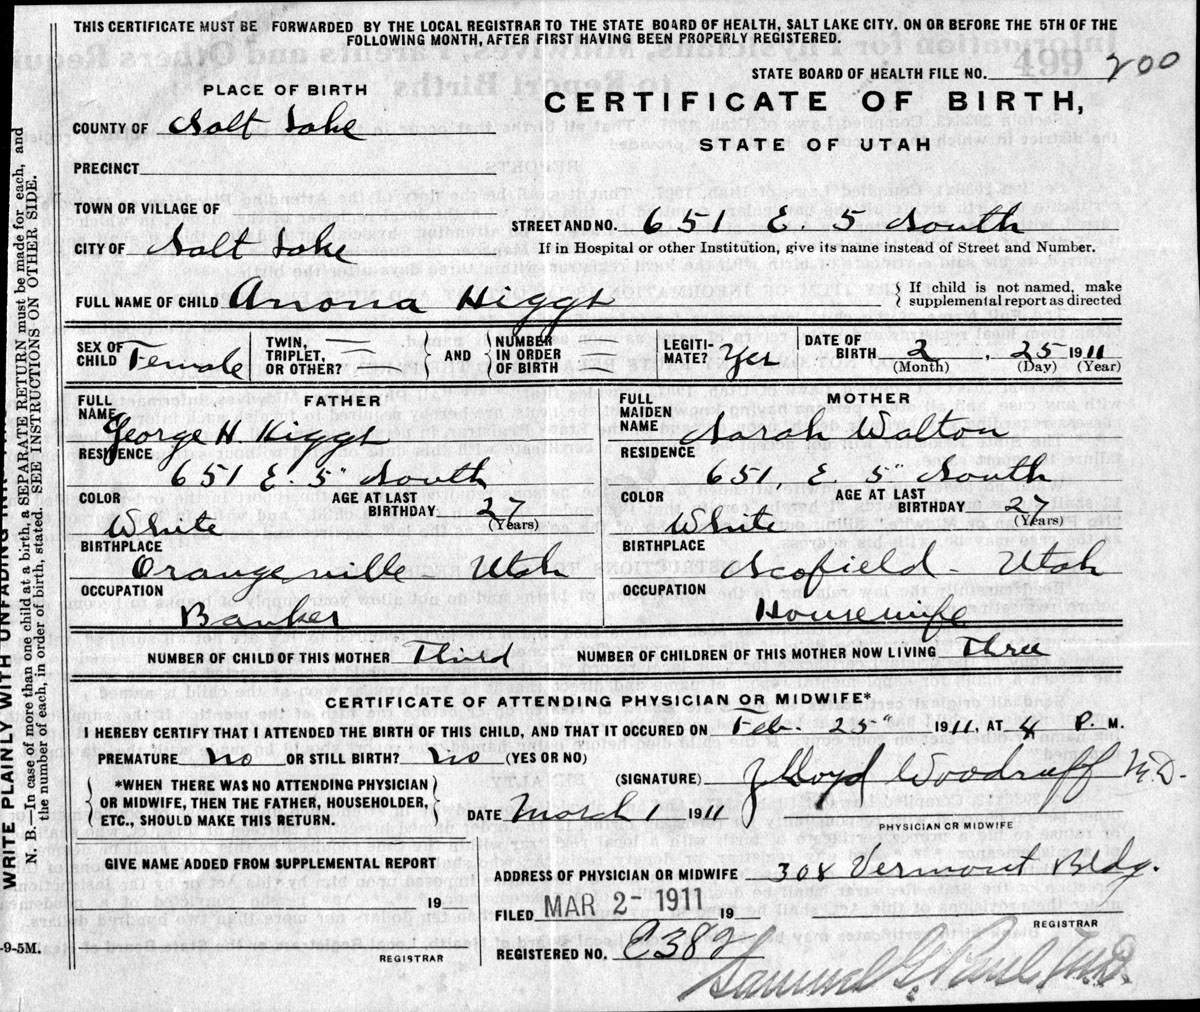 THIS CERTIFICATE MUST BE FORWARDED BY THE LOCAL REGISTRAR TO THE STATE BOARD OF HEALTH, SALT LAKE CITY, ON OR BEFORE THE 5TH OF THE
FOLLOWING MONTH, AFTER FIRST HAVING BEEN PROPERLY REGISTERED.
STATE BOARD OF HEALTH FILE NO. 200
PLACE OF BIRTH
CERTIFICATE OF BIRTH,
COUNTY OF Salt Lake
STATE OF UTAH
PRECINCT
TOWN OR VILLAGE OF
STREET AND NO. 651 E. 5 South
CITY OF Salt Lake
If in Hospital or other Institution, give its name instead of Street and Number.
FULL NAME OF CHILD Anona Higgs
{ If child is not named, make
supplemental report as directed
SEX OF CHILD Female
TWIN, TRIPLET, OR OTHER? —
} AND { NUMBER IN ORDER OF BIRTH
LEGITI-MATE? Yes
DATE OF BIRTH 2, 25 1911
(Month) (Day) (Year)
FATHER
FULL NAME George H. Higgs
RESIDENCE
651 E. 5" South
COLOR White
AGE AT LAST BIRTHDAY
(Years)
BIRTHPLACE
Orangeville - Utah
OCCUPATION
Banker
MOTHER
FULL MAIDEN NAME Sarah Walton
RESIDENCE
651, E. 5" South
COLOR White
AGE AT LAST BIRTHDAY 27
(Years)
BIRTHPLACE
Scofield - Utah
OCCUPATION
Housewife
NUMBER OF CHILD OF THIS MOTHER Third
NUMBER OF CHILDREN OF THIS MOTHER NOW LIVING Three
CERTIFICATE OF ATTENDING PHYSICIAN OR MIDWIFE*
I HEREBY CERTIFY THAT I ATTENDED THE BIRTH OF THIS CHILD, AND THAT IT OCCURED ON Feb. 25" 1911, AT 4 P. M.
PREMATURE no OR STILL BIRTH? no (YES OR NO)
{ *WHEN THERE WAS NO ATTENDING PHYSICIAN
OR MIDWIFE, THEN THE FATHER, HOUSEHOLDER,
ETC., SHOULD MAKE THIS RETURN. }
(SIGNATURE) J Lloyd Woodruff M.D.
PHYSICIAN OR MIDWIFE
DATE March 1 1911
GIVE NAME ADDED FROM SUPPLEMENTAL REPORT
19
REGISTRAR
ADDRESS OF PHYSICIAN OR MIDWIFE 308 Vermont Bldg.
FILED MAR 2-1911 19
REGISTRAR
REGISTERED NO. C382
Samuel G. Paul M.D.
-9-5M.
WRITE PLAINLY WITH UNFADING INK
N. B.—In case of more than one child at a birth, a SEPARATE RETURN must be made for each, and
the number of each, in order of birth, stated. SEE INSTRUCTIONS ON OTHER SIDE.